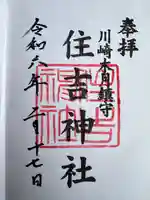 奉拝
川崎木月鎮守
住吉神社
令和六年 月十七日